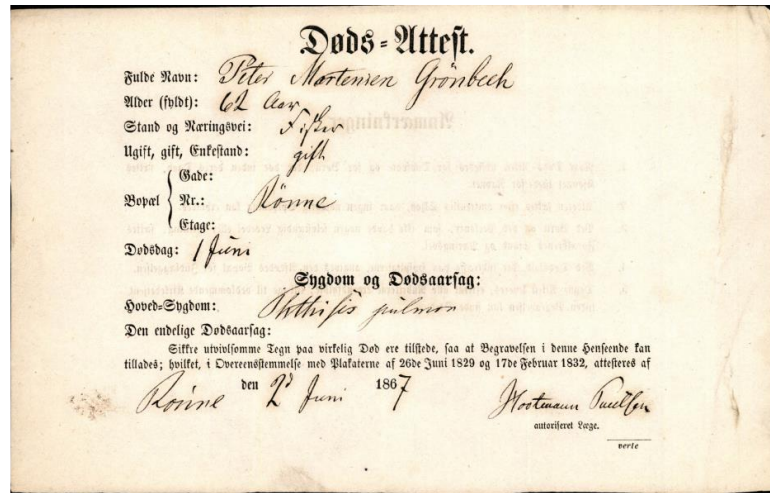 Døds-Attest.
Fulde Navn: Peter Mortensen Grönbech
Alder (fyldt): 62 Aar
Stand og Næringsvei: Fisker
Ugift, gift, Enkestand: gift
Gade:
Bopæl Nr.: Rönne
Etage:
Dødsdag: 1 Juni
Sygdom og Dødsaarsag:
Hoved-Sygdom: Phthisis pulmon
Den endelige Dødsaarsag:
Sikkre utvivlsomme Tegn paa virkelig Død ere tilstede, saa at Begravelsen i denne Henseende kan
tillades; hvilket, i Overeensstemmelse med Plakaterne af 26de Juni 1829 og 17de Februar 1832, attesteres af
Rönne den 2d Juni 1867
autoriseret Læge.
verte